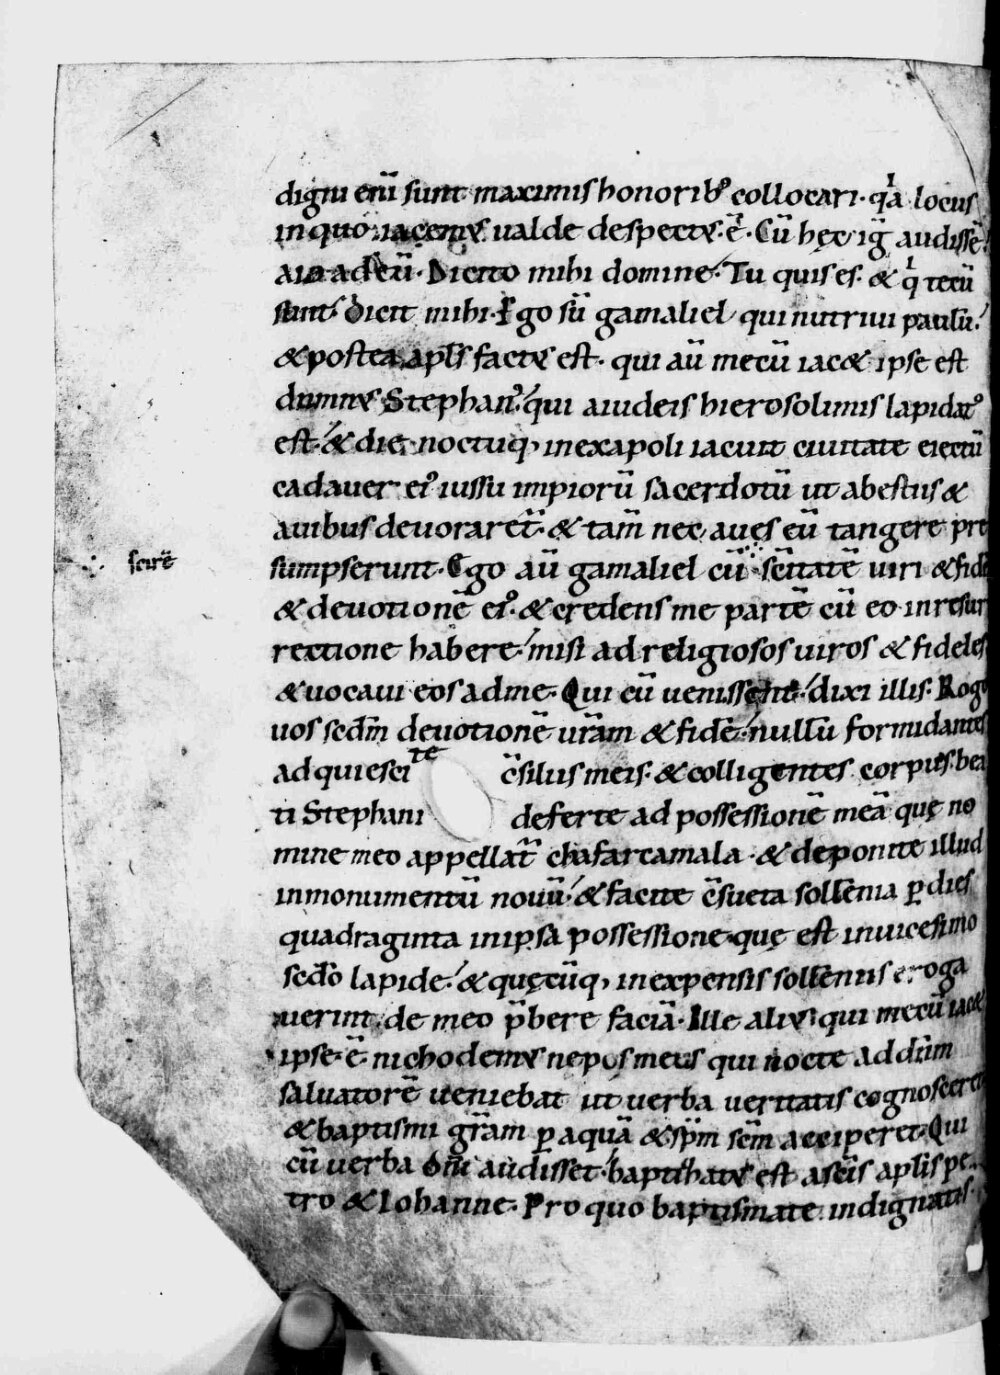 digni eni᷑ sunt maximis honoribꝰ collocari· qͥa locus
in quo iacemꝰ ualde despectꝰ ē· Cū hęc igͥ audissē
aio ad eū· Dicito mihi domine· Tu quis es· & qͥ tecū
sunt· Dicit mihi· Ego sū gamaliel qui nutriui paulū·
& postea apl̄s factꝰ est· qui aū mecū iac& ipse est
dominꝰ Stephanꝰ· qui a iudeis hierosolimis lapidatꝰ
est· & die noctuq; in exapoli iacuit ciuitate eiectū
cadauer eiꝰ iussu impiorū sacerdotū ut a bestiis &
auibus deuorar&̄· & tam̄ nec aues eū tangere pre
sumpserunt· Ego aū gamaliel cū ∴ sc̄itatē uiri & fidē
∴ scirē
& deuotionē eiꝰ· & credens me partē cū eo in resur
rectione habere· misi ad religiosos uiros & fideles
& uocaui eos ad me· Qui cū uenissent· dixi illis· Rogo
uos scdm̄ deuotionē ur̄am & fidē· nullū formidantes
ad quiescite c̄siliis meis· & colligentes corpus bea
ti Stephani deferte ad possessionē meā quę no
mine meo appellat̄ chafarcamala· & deponite illud
in monumentū nouū· & facite c̄sueta sollēnia ꝑ dies
quadraginta in ipsa possessione quę est in uicesimo
scdō lapide· & quęcūq; in expensis sollēniis eroga
uerint· de meo p̄bere faciā· Ille aliꝰ qui mecū iac&
ipse ē nichodemꝰ nepos meus qui nocte ad dn̄m
saluatorē ueniebat ut uerba ueritatis cognoscer&
& baptismi gr̄am ꝑ aquā & sp̄m sc̄m acciperet· Qui
cū uerba dn̄i audisset· baptizatꝰ est a sc̄is apl̄is pe
tro & Iohanne· Pro quo baptismate indignatis